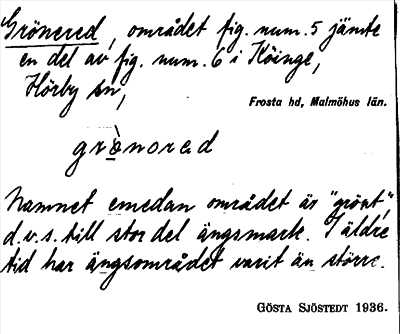 Grönered, området fig. num. 5 jämte
en del av fig. num. 6 i Köinge,
Hörby sn,
Frosta hd, Malmöhus län.
grø̀nored
Namnet emedan området är "grönt",
d.v.s. till stor del ängsmark. I äldre
tid har ängsområdet varit än större.
GÖSTA SJÖSTEDT 1936.